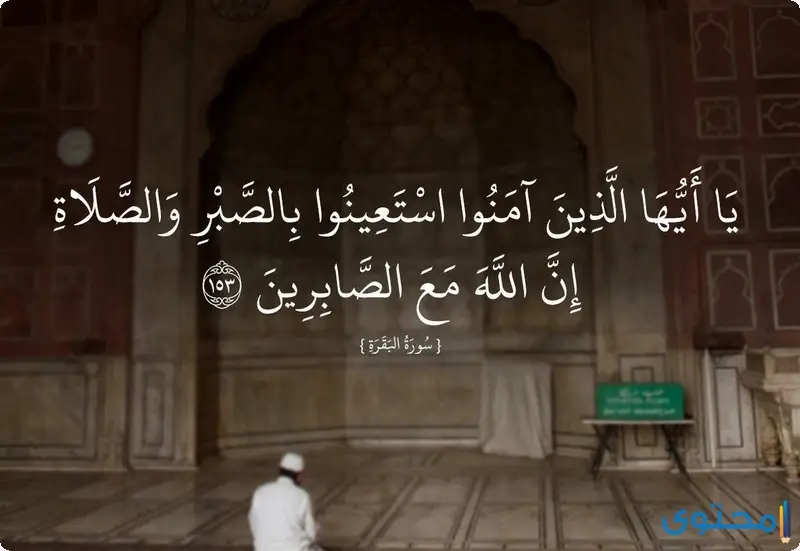 يَا أَيُّهَا الَّذِينَ آمَنُوا اسْتَعِينُوا بِالصَّبْرِ وَالصَّلَاةِ
إِنَّ اللَّهَ مَعَ الصَّابِرِينَ ١٥٣
{ سُورَةُ البَقَرَةِ }
محتوى